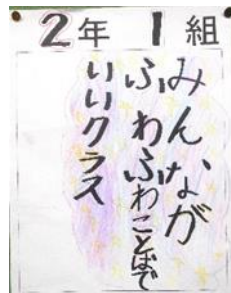 2年1組
みんなが
ふわふわことばで
いいクラス